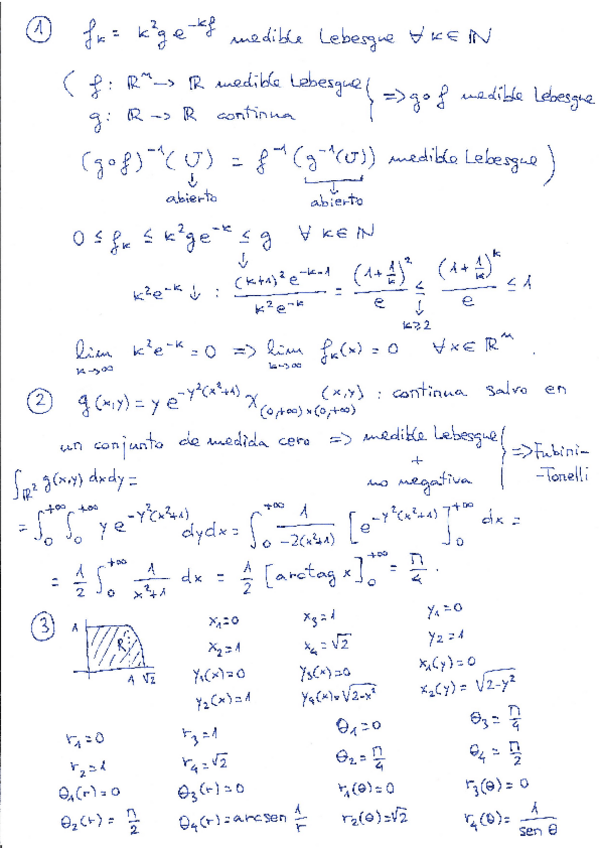 ① fₖ = k²ge^{-kf} medible Lebesgue ∀ k ∈ ℕ
( f: ℝⁿ → ℝ medible Lebesgue
g: ℝ → ℝ continua } ⇒ g∘f medible Lebesgue
(g∘f)⁻¹(U) = f⁻¹(g⁻¹(U)) medible Lebesgue )
↓ abierto ↓ abierto
0 ≤ fₖ ≤ k²ge^{-k} ≤ g ∀ k ∈ ℕ
↓
k²e^{-k} ↓ : (k+1)²e^{-k-1} / k²e^{-k} = (1+1/k)² / e ≤ (1+1/k)^k / e ≤ 1
↓ k≥2
lim_{k→∞} k²e^{-k} = 0 ⇒ lim_{k→∞} fₖ(x) = 0 ∀ x ∈ ℝⁿ.
② g(x,y) = y e^{-y²(x²+1)} χ_{(0,+∞)×(0,+∞)} (x,y) : continua salvo en
un conjunto de medida cero ⇒ medible Lebesgue + no negativa } ⇒ Fubini-Tonelli
∫_{ℝ²} g(x,y) dxdy =
= ∫₀^{+∞} ∫₀^{+∞} y e^{-y²(x²+1)} dydx = ∫₀^{+∞} 1/(-2(x²+1)) [e^{-y²(x²+1)}]₀^{+∞} dx =
= 1/2 ∫₀^{+∞} 1/(x²+1) dx = 1/2 [arctag x]₀^{+∞} = π/4.
③ 1 R 1 √2
x₁=0 x₃=1 y₁=0
x₂=1 x₄=√2 y₂=1
y₁(x)=0 y₃(x)=0 x₁(y)=0
y₂(x)=1 y₄(x)=√(2-x²) x₂(y)=√(2-y²)
r₁=0 r₃=1 θ₁=0 θ₃=π/4
r₂=1 r₄=√2 θ₂=π/4 θ₄=π/2
θ₁(r)=0 θ₃(r)=0 r₁(θ)=0 r₃(θ)=0
θ₂(r)=π/2 θ₄(r)=arcsen 1/r r₂(θ)=√2 r₄(θ)=1/sen θ